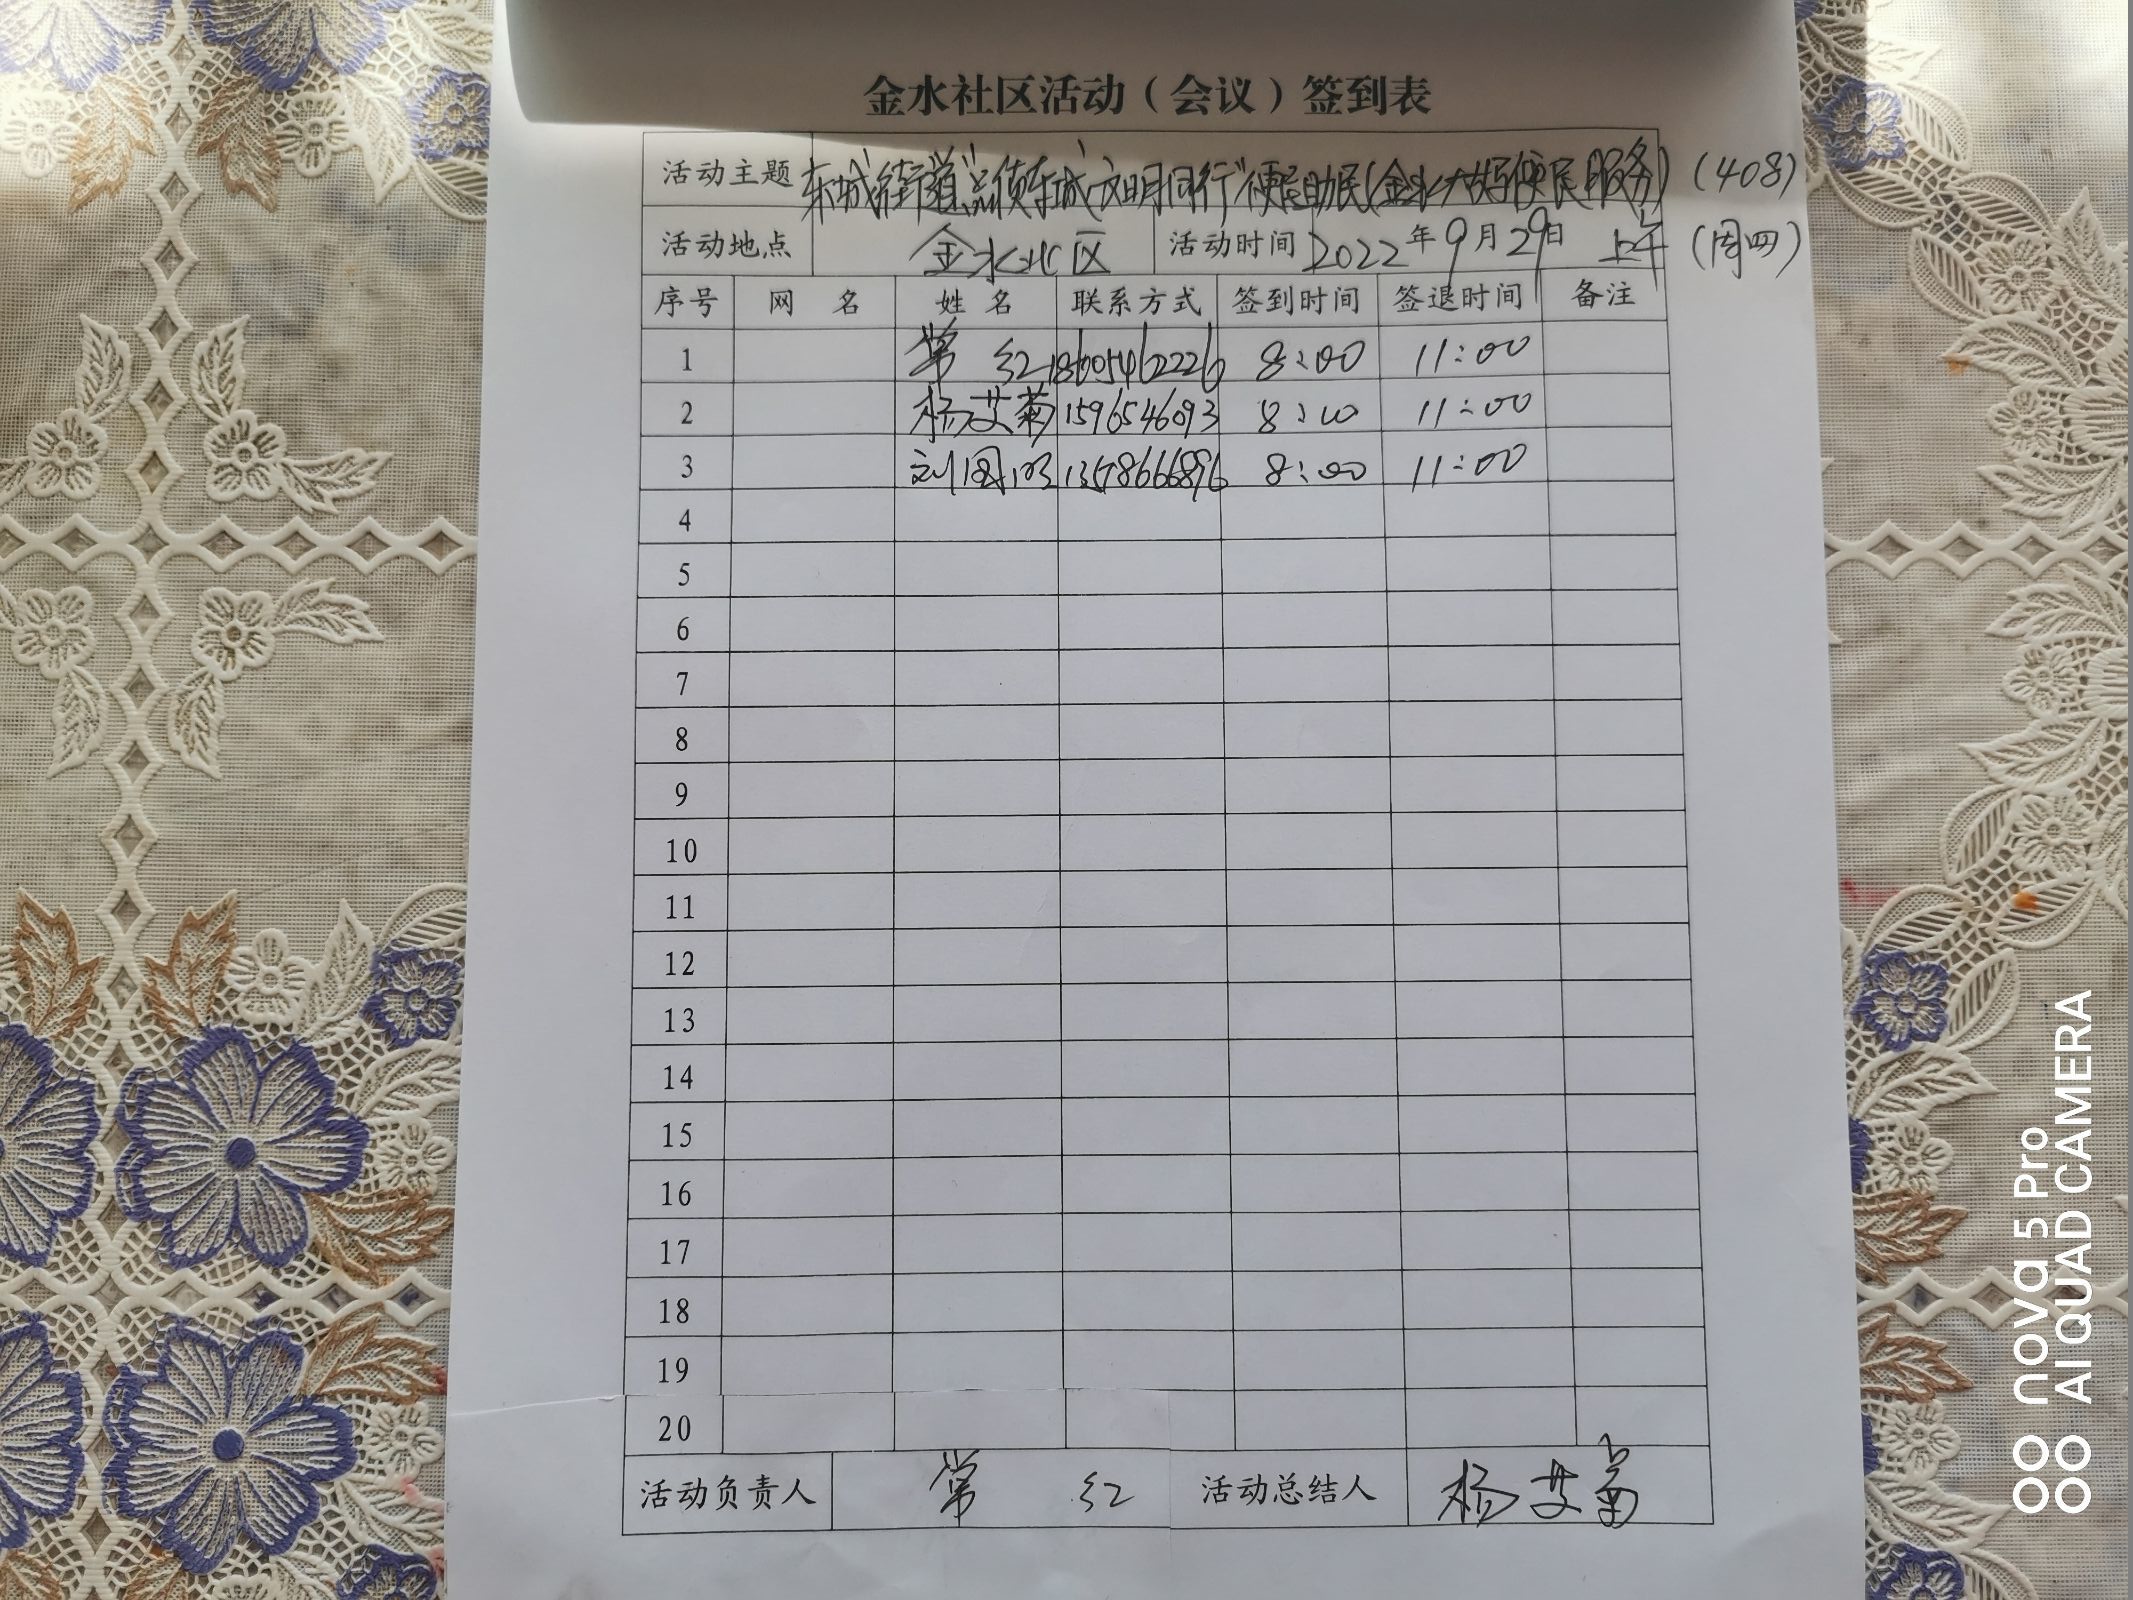 金水社区活动（会议）签到表
活动主题 东城街道"点侦东城 文明同行"便民助民(金水大妈便民服务) (408)
活动地点 金水北区 活动时间 2022年9月29日 上午 (周四)
序号 网 名 姓 名 联系方式 签到时间 签退时间 备注
1 常 红 18605462226 8:00 11:00
2 杨艾菊 1596546093 8:00 11:00
3 刘 8:00 11:00
4
5
6
7
8
9
10
11
12
13
14
15
16
17
18
19
20
活动负责人 常 红 活动总结人 杨艾菊
nova 5 Pro
AI QUAD CAMERA